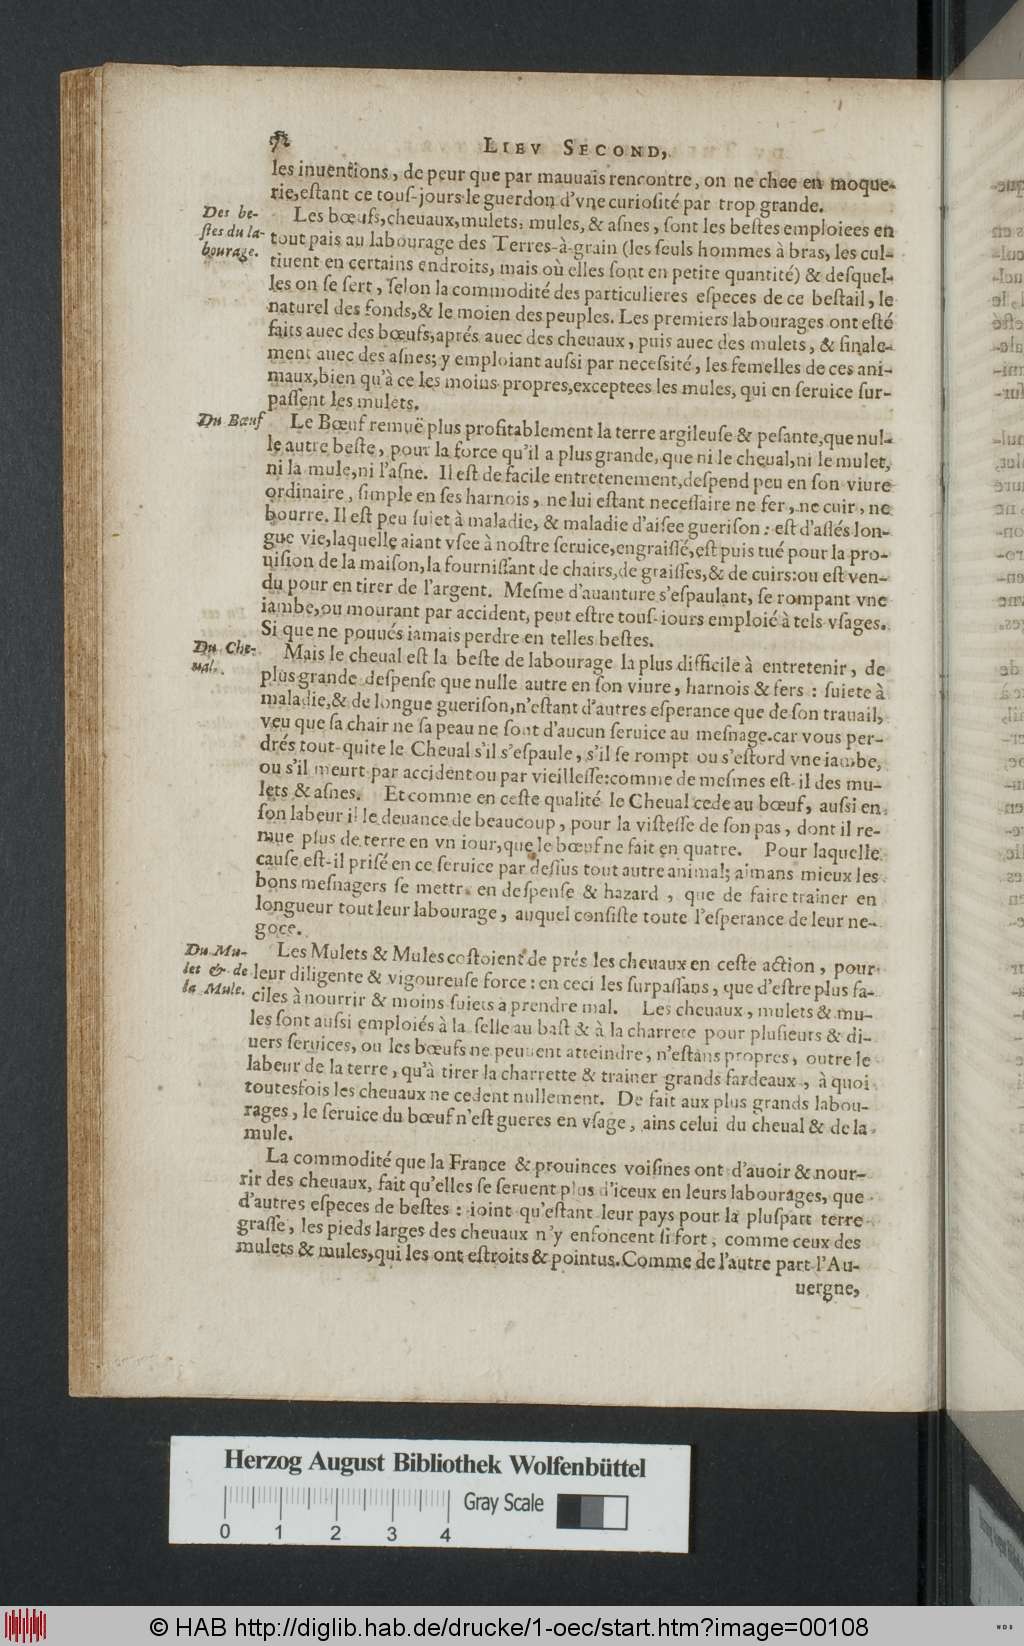 LIEV SECOND,
les inuentions, de peur que par mauuais rencontre, on ne chee en moque-
rie, estant ce tous-jours le guerdon d'vne curiosité par trop grande.
Des be-
stes du la-
bourage.
Les bœufs, cheuaux, mulets, mules, & asnes, sont les bestes emploiees en
tout pais au labourage des Terres-à-grain (les seuls hommes à bras, les cul-
tiuent en certains endroits, mais où elles sont en petite quantité) & desquel-
les on se sert, selon la commodité des particulieres especes de ce bestail, le
naturel des fonds, & le moien des peuples. Les premiers labourages ont esté
faits auec des bœufs, aprés auec des cheuaux, puis auec des mulets, & finale-
ment auec des asnes; y emploiant aussi par necessité, les femelles de ces ani-
maux, bien qu'à ce les moins propres, exceptees les mules, qui en seruice sur-
passent les mulets.
Du Bœuf
Le Bœuf remuë plus profitablement la terre argileuse & pesante, que nul-
le autre beste, pour la force qu'il a plus grande, que ni le cheual, ni le mulet,
ni la mule, ni l'asne. Il est de facile entretenement, despend peu en son viure
ordinaire, simple en ses harnois, ne lui estant necessaire ne fer, ne cuir, ne
bourre. Il est peu suiet à maladie, & maladie d'aisee guerison: est d'assés lon-
gue vie, laquelle aiant vsee à nostre seruice, engraissé, est puis tué pour la pro-
uision de la maison, la fournissant de chairs, de graisses, & de cuirs: ou est ven-
du pour en tirer de l'argent. Mesme d'auanture s'espaulant, se rompant vne
iambe, ou mourant par accident, peut estre tous-iours emploié à tels vsages.
Si que ne pouués iamais perdre en telles bestes.
Du Che-
ual.
Mais le cheual est la beste de labourage la plus difficile à entretenir, de
plus grande despense que nulle autre en son viure, harnois & fers: suiete à
maladie, & de longue guerison, n'estant d'autres esperance que de son trauail,
veu que sa chair ne sa peau ne sont d'aucun seruice au mesnage. car vous per-
drés tout-quite le Cheual s'il s'espaule, s'il se rompt ou s'estord vne iambe,
ou s'il meurt par accident ou par vieillesse: comme de mesmes est-il des mu-
lets & asnes. Et comme en ceste qualité le Cheual cede au bœuf, aussi en
son labeur il le deuance de beaucoup, pour la vistesse de son pas, dont il re-
mue plus de terre en vn iour, que le bœuf ne fait en quatre. Pour laquelle
cause est-il prisé en ce seruice par dessus tout autre animal; aimans mieux les
bons mesnagers se mettre en despense & hazard, que de faire trainer en
longueur tout leur labourage, auquel consiste toute l'esperance de leur ne-
goce.
Du Mu-
let & de
la Mule.
Les Mulets & Mules costoient de prés les cheuaux en ceste action, pour
leur diligente & vigoureuse force: en ceci les surpassans, que d'estre plus fa-
ciles à nourrir & moins suiets a prendre mal. Les cheuaux, mulets & mu-
les sont aussi emploiés à la selle au bast & à la charrete pour plusieurs & di-
uers seruices, ou les bœufs ne peuuent atteindre, n'estans propres, outre le
labeur de la terre, qu'à tirer la charrette & trainer grands fardeaux, à quoi
toutesfois les cheuaux ne cedent nullement. De fait aux plus grands labou-
rages, le seruice du bœuf n'est gueres en vsage, ains celui du cheual & de la
mule.
La commodité que la France & prouinces voisines ont d'auoir & nour-
rir des cheuaux, fait qu'elles se seruent plus d'iceux en leurs labourages, que
d'autres especes de bestes: ioint qu'estant leur pays pour la pluspart terre
grasse, les pieds larges des cheuaux n'y enfoncent si fort, comme ceux des
mulets & mules, qui les ont estroits & pointus. Comme de l'autre part l'Au-
uergne,
Herzog August Bibliothek Wolfenbüttel
Gray Scale
0 1 2 3 4
© HAB http://diglib.hab.de/drucke/1-oec/start.htm?image=00108